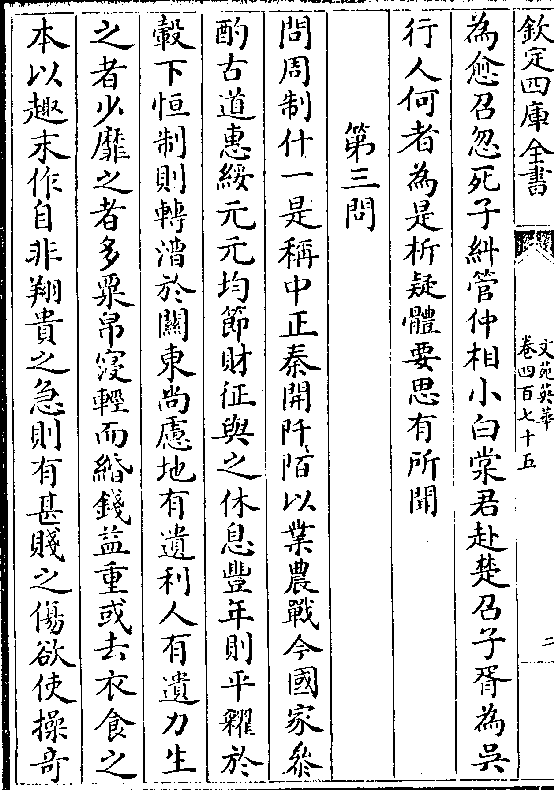 欽定四庫全書
文苑英華
卷四百七十五
二
為愈召忽死子糾管仲相小白棠君赴楚召子胥為吳
行人何者為是析疑體要思有所聞
第三問
問周制什一是稱中正秦開阡陌以業農戰今國家參
酌古道惠綏元元均節財征與之休息豐年則平糴於
轂下恒制則轉漕於關東尚慮地有遺利人有遺力生
之者少靡之者多粟帛寖輕而緡錢益重或去衣食之
本以趣末作自非翔貴之急則有甚賤之傷欲使操竒